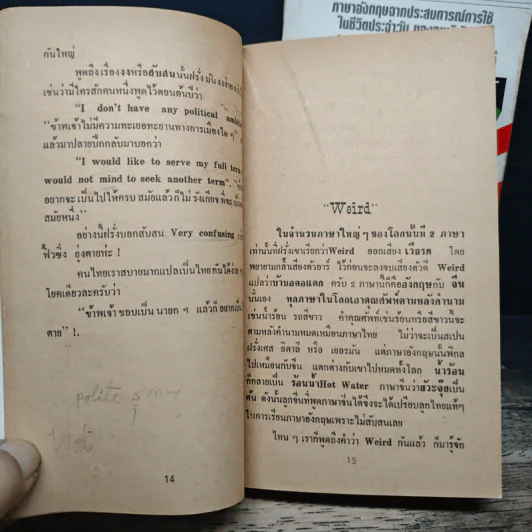 ภาษาอังกฤษจากประสบการณ์การใช้
ในชีวิตประจำวัน
กันใหญ่
พูดถึงเรื่องงงหรือสับสนนั้นฝรั่งมันงงง่าย
เช่นว่ามีใครสักคนหนึ่งพูดไว้ตอนต้นปีว่า
"I don't have any political
"ข้าพเจ้าไม่มีความทะเยอทะยานทางการเมืองใด ๆ"
แล้วมาปลายปีกกลับมาบอกว่า
"I would like to serve my full term
would not mind to seek another term".
อยากจะเป็นไปให้ครบ สมัยแล้วก็ไม่ รังเกียจ ที่จะ
สมัยหนึ่ง"
อย่างนี้ฝรั่งบอกสับสน Very confusing
ฟิ้วซิ่ง ยุ่งตายห่ะ !
คนไทยเราสบายมากแปลเป็นไทยกันได้ง่าย
โยคเดียวละครับว่า
"ข้าพเจ้า ชอบเป็น นายก ๆ แล้วก็อยากเป็น
ตาย" !.
polite
14
"Weird"
ในจำนวนภาษาใหญ่ ๆ ของโลกนั้นมี 2 ภาษา
เท่านั้นที่ฝรั่งเขาเรียกว่าWeird ออกเสียง เวียรด โดย
พยายามกล้ำเสียงตัวอาร์ ไว้ก่อนจะลงจบเสียงตัวดี Weird
แปลว่าบ้าบอคอแตก ครับ 2 ภาษานี้ก็คืออังกฤษกับ จีน
นั่นเอง ทุกภาษาในโลกเอาคุณศัพท์ตามหลังคำนาม
เช่นน้ำร้อน รถสีขาว คำคุณศัพท์เช่นร้อนหรือสีขาวนี้จะ
ตามหลังคำนามหมดเหมือนภาษาไทย ไม่ว่าจะเป็นสเปน
ฝรั่งเศส อิตาลี หรือ เยอรมัน แต่ภาษาอังกฤษนั้นพิกล
ไปเหมือนกับจีน แตกต่างกับเขาไปหมดทั้งโลก น้ำร้อน
ก็กลายเป็น ร้อนน้ำHot Water ภาษาจีนว่าฮัวะจุ๊ยเป็น
ต้น ดังนั้นลูกจีนที่พูดภาษาจีนได้จึงจะได้เปรียบลูกไทยแท้ๆ
ในการเรียนภาษาอังกฤษเพราะไม่สับสนเลย
ไหน ๆ เราก็พูดถึงคำว่า Weird กันแล้ว ก็มารู้จัก
15